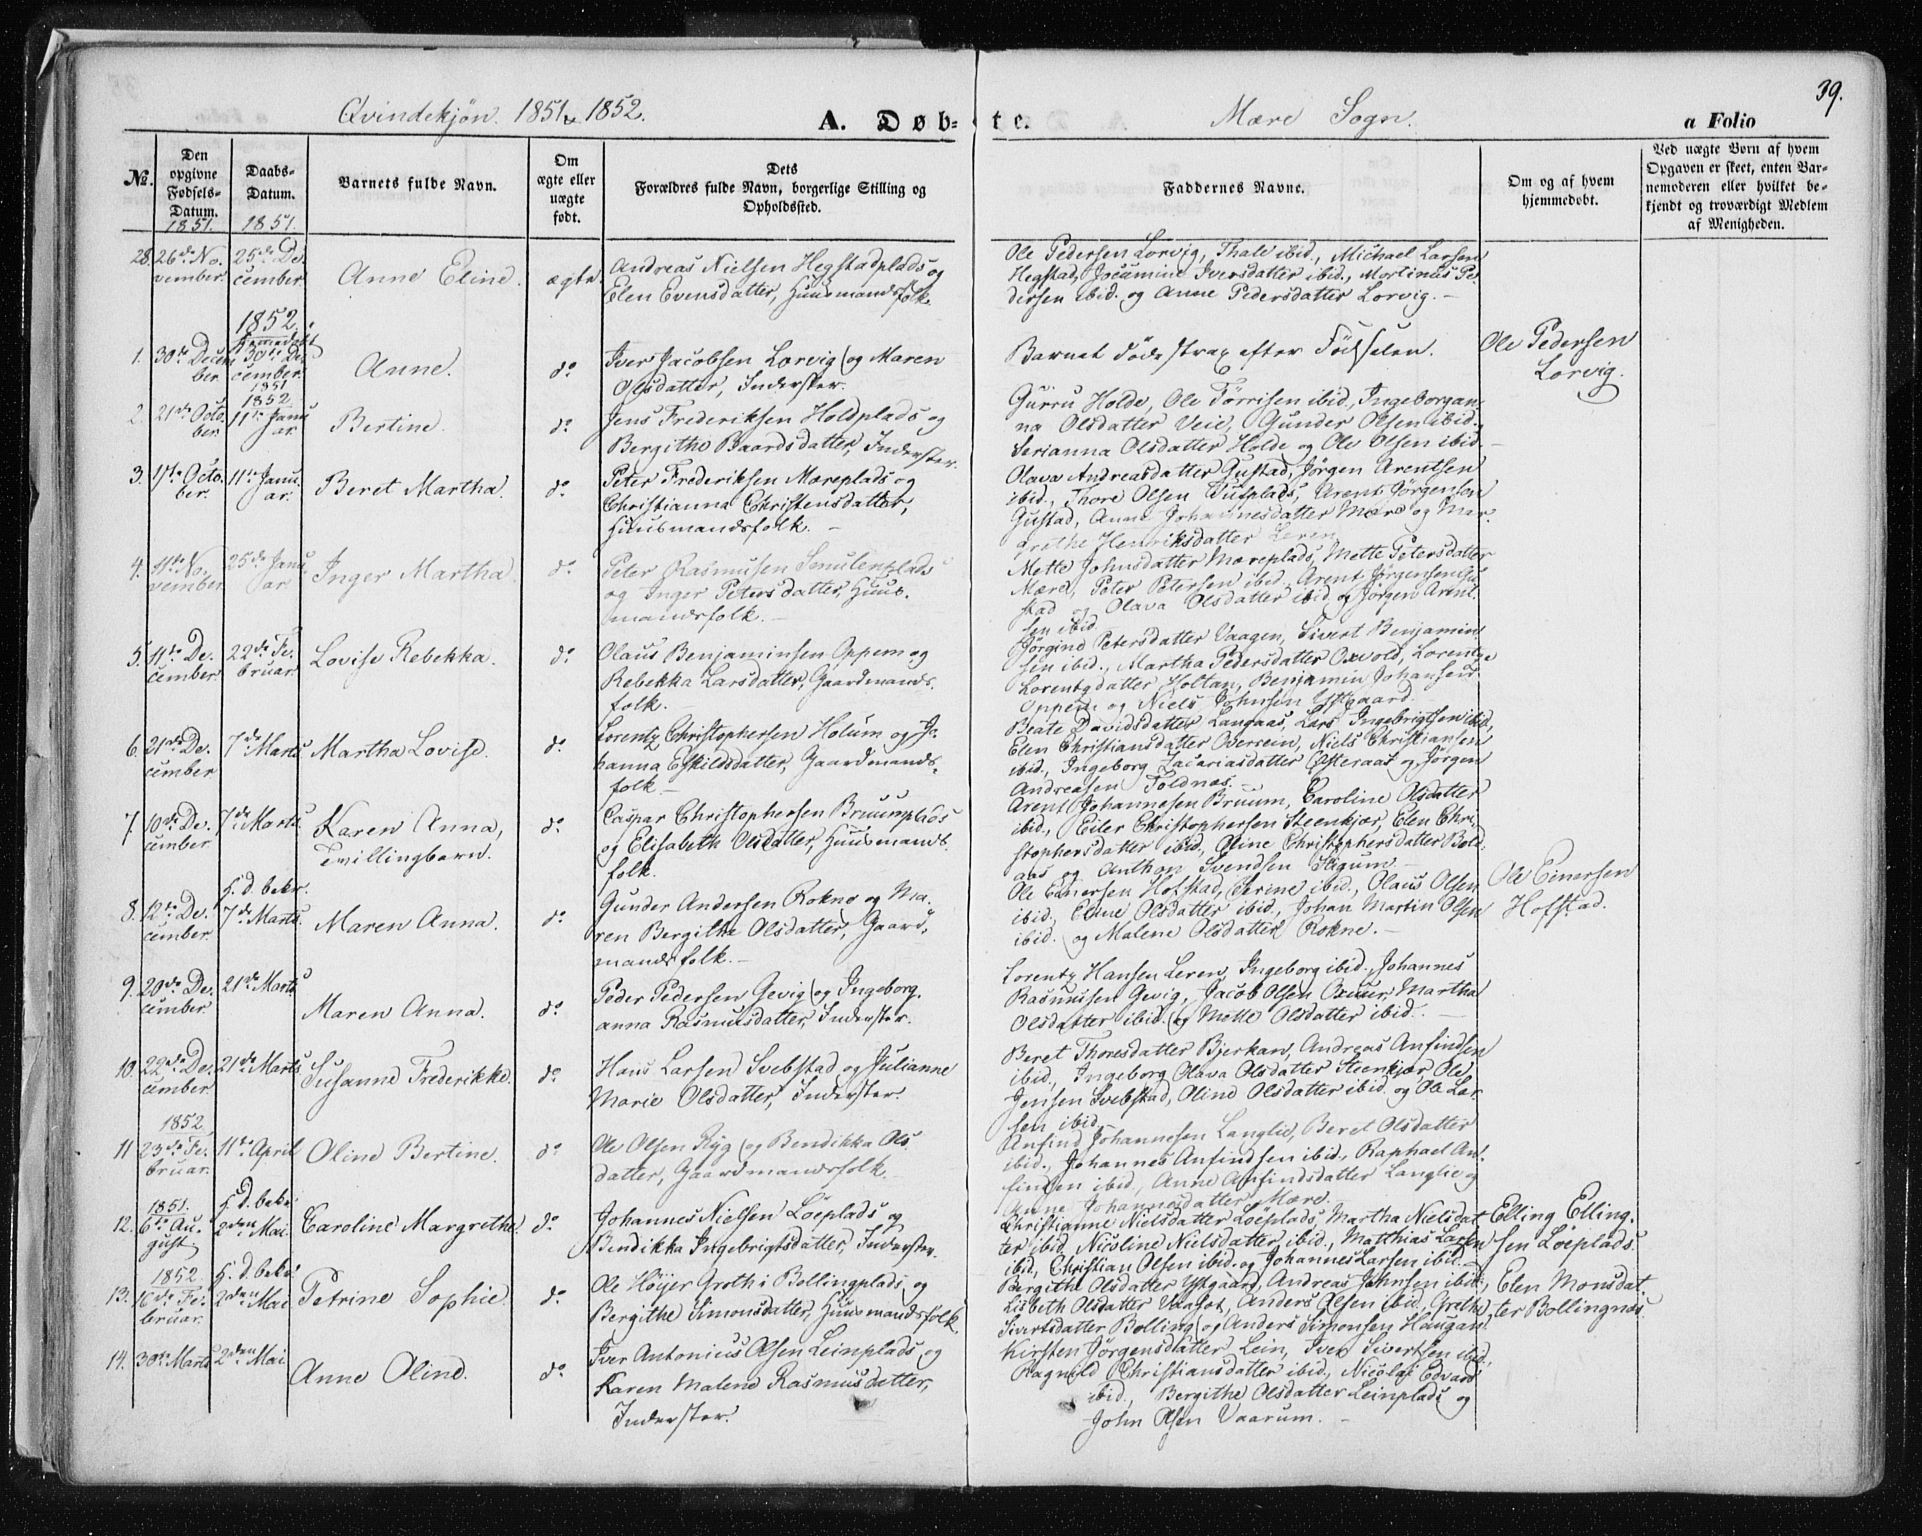 39.
Qvindekjøn. 1851 & 1852.
A. Døbte.
Mære Sogn.
a Folio
№.
Den opgivne Fødsels-Datum.
Daabs-Datum.
Barnets fulde Navn.
Om ægte eller uægte født.
Dets Forældres fulde Navn, borgerlige Stilling og Opholdssted.
Faddernes Navne.
Om og af hvem hjemmedøbt.
Ved uægte Børn af hvem Opgaven er skeet, enten Barnemoderen eller hvilket bekjendt og troværdigt Medlem af Menigheden.
1851. 1851.
28. 26de No-vember. 25de De-cember. Anne Eline. ægte
Andreas Nielsen Hegstadplads og
Elen Evensdatter, Huusmandsfolk.
Ole Pedersen Lorvig, Thale ibid., Michael Larsen
Hegstad, Jocumine Iversdatter ibid., Mortinus Pe-
dersen ibid. og Anne Pedersdatter Lorvig. –
1852.
1. 30de Decem-ber. Hjemmedøbt 30te De-cember. 1851 Anne. do
Iver Jacobsen Lorvig og Maren
Olsdatter, Inderster.
Barnet døde strax efter Fødselen.
Ole Pedersen
Lorvig.
1852
2. 21de Octo-ber. 11te Janu-ar Bertine. do
Jens Frederiksen Holdplads og
Bergithe Baardsdatter, Inderster.
Gurru Holde, Ole Tørrisen ibid., Ingeborgan-
na Olsdatter Veie, Gunder Olsen ibid.,
Serianna Olsdatter Holde og Ole Olsen ibid. –
3. 1ste Octo-ber. 11te Janu-ar. Beret Martha. do
Peter Frederiksen Mæreplads og
Christianna Christensdatter,
Huusmandsfolk. –
Olava Andreasdatter Gustad, Jørgen Arentsen
ibid., Thore Olsen Tuvplads, Arent Jørgensen
Gustad, Anne Johannesdatter Mære og Mar-
grethe Henriksdatter Leren
4. 11te No-vember 25de Janu-ar Inger Martha. do
Peter Rasmussen Smulenplads
og Inger Petersdatter, Huus-
mandsfolk. –
Mette Johnsdatter Mæreplads, Mette Petersdatter
Mære, Peter Petersen ibid., Arent Jørgensen Gu-
stad og Olava Olsdatter ibid og Jørgen Arent-
sen ibid.
5. 11te De-cember 22de Fe-bruar. Lovise Rebekka. do
Olaus Benjaminsen Oppem og
Rebekka Larsdatter, Gaardmands-
folk. –
Jørgine Petersdatter Vaagen, Sivert Benjamin-
sen ibid., Martha Pedersdatter Oxvold, Lorentze
Lorentzdatter Holtan, Benjamin Johansen
Oppem og Niels Johnsen Østgaard.
6. 21de De-cember 7de Marts Martha Lovise. do
Lorentz Christophersen Holum og Jo-
hanna Eskildsdatter, Gaardmands-
folk –
Beate Davidsdatter Langaas, Lars Ingebrigtsen ibid,
Elen Christiansdatter Oversein, Niels Christiansen
ibid., Ingeborg Zacariasdatter Østeraat og Jørgen
Andreasen Foldnæs.
7. 10de De-cember. 7de Marts. Karen Anna,
Tvillingbarn. do
Caspar Christophersen Bruumplads
og Elisabeth Olsdatter, Huusmands-
folk.
Arent Johannesen Bruum, Caroline Olsdatter
ibid., Eiler Christophersen Steenkjær, Elen Chri-
stophersdatter ibid, Oline Christophersdatter Bold-
aas og Anthon Svendsen Hegum –
8. 12te De-cember. H. d. bekr. 7de Marts. Maren Anna. do
Gunder Andersen Rokne og Ma-
ren Bergithe Olsdatter, Gaard-
mandsfolk. –
Ole Einersen Hofstad, Serine ibid., Olaus Olsen
ibid., Eline Olsdatter ibid., Johan Martin Olsen
ibid. og Malene Olsdatter Rokne. –
Ole Einersen
Hofstad.
9. 20de De-cember. 21de Marts Maren Anna. do
Peder Pedersen Gevig og Ingeborg-
anna Rasmusdatter, Inderster.
Lorentz Hansen Leren, Ingeborg ibid., Johannes
Rasmussen Gevig, Jacob Olsen Oxaar, Martha
Olsdatter ibid. og Mette Olsdatter ibid. –
10. 22de De-cember. 21de Marts Susanne Frederikke. do
Hans Larsen Svebstad og Julianne
Marie Olsdatter, Inderster.
Beret Thoresdatter Bjerkan, Andreas Anfindsen
ibid., Ingeborg Olava Olsdatter Steenkjær, Ole
Jensen Svebstad, Oline Olsdatter ibid og Ole Lar-
sen ibid.
1852
11 23de Fe-bruar. 11te April Oline Bertine. do
Ole Olsen Ryg og Bendikka Ols-
datter, Gaardmandsfolk.
Anfind Johannesen Langlie, Beret Olsdatter
ibid., Johannes Anfindsen ibid., Raphael An-
findsen ibid, Anne Anfindsdatter Langlie og
Anne Johannesdatter Mære.
1851.
12. 6te Au-gust H. d. bekr. 2den Mai. Caroline Margrethe. do
Johannes Nielsen Løeplads og
Bendikka Ingebrigtsdatter, Inderster.
Christianne Nielsdatter Løeplads, Martha Nielsdat-
ter ibid, Nicoline Nielsdatter ibid., Matthias Larsen
ibid, Christian Olsen ibid. og Johannes Larsen ibid. –
Elling Elling-
sen Løeplads.
1852
13. 16de Fe-bruar. H. d. bekr. 2den Mai Petrine Sophie. do
Ole Høyer Groth i Bollingplads og
Bergithe Simonsdatter, Huusmandsfolk.
Bergithe Olsdatter Østgaard, Andreas Johnsen ibid.,
Lisbeth Olsdatter Vaaset, Anders Olsen ibid., Grethe
Sivertsdatter Bolling og Anders Simonsen Haugan.
Elen Monsdat-
ter Bollingnæs.
14. 30te Marts 2den Mai Anne Oline. do
Iver Antonius Olsen Leinplads og
Karen Malene Rasmusdatter,
Inderster.
Kirsten Jørgensdatter Lein, Iver Sivertsen ibid,
Ragnild Christiansdatter ibid., Nicolai Edvard
ibid., Bergithe Olsdatter Leinplads og
John Olsen Vaarum. –